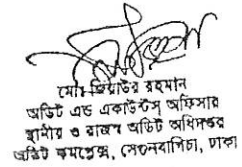 মোঃ জিয়াউর রহমান
অডিট এন্ড একাউন্টস্ অফিসার
স্থানীয় ও রাজস্ব অডিট অধিদপ্তর
অডিট কমপ্লেক্স, সেগুনবাগিচা, ঢাকা